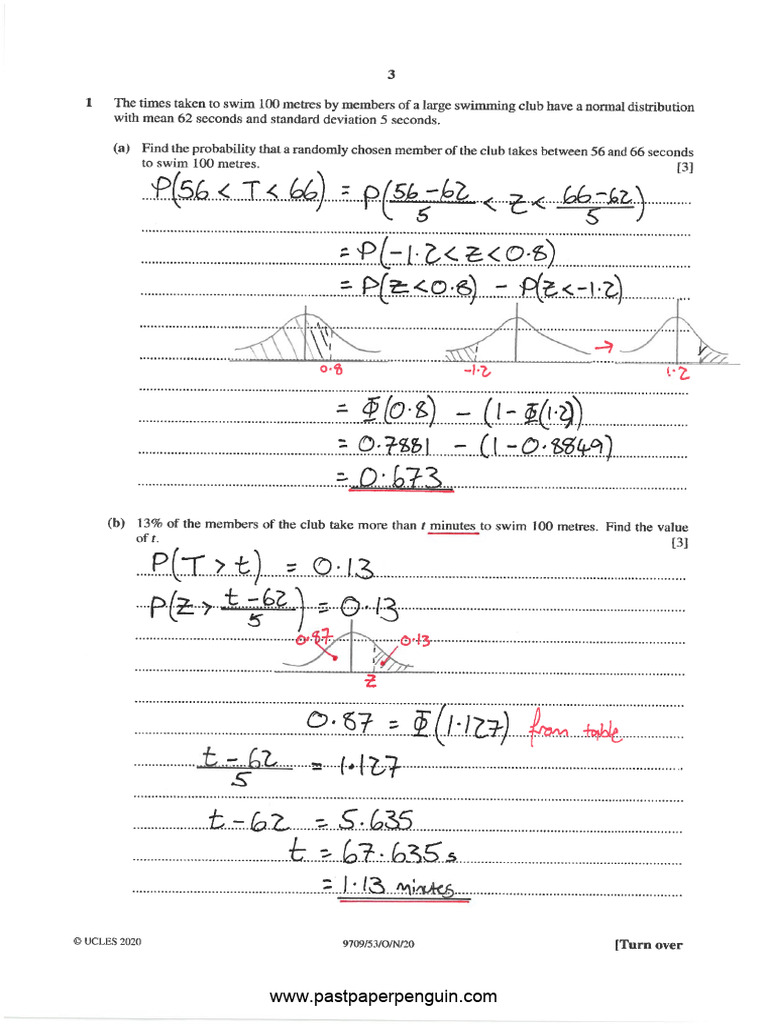 3
1 The times taken to swim 100 metres by members of a large swimming club have a normal distribution
with mean 62 seconds and standard deviation 5 seconds.
(a) Find the probability that a randomly chosen member of the club takes between 56 and 66 seconds
to swim 100 metres. [3]
P(56 < T < 66) = P((56-62)/5 < Z < (66-62)/5)
= P(-1.2 < Z < 0.8)
= P(Z < 0.8) - P(Z < -1.2)
0.8 -1.2 → 1.2
= Φ(0.8) - (1 - Φ(1.2))
= 0.7881 - (1 - 0.8849)
= 0.673
(b) 13% of the members of the club take more than t minutes to swim 100 metres. Find the value
of t. [3]
P(T > t) = 0.13
P(Z > (t-62)/5) = 0.13
0.87 0.13
Z
0.87 = Φ(1.127) from table
(t-62)/5 = 1.127
t - 62 = 5.635
t = 67.635 s
= 1.13 minutes
© UCLES 2020 9709/53/O/N/20 [Turn over
www.pastpaperpenguin.com